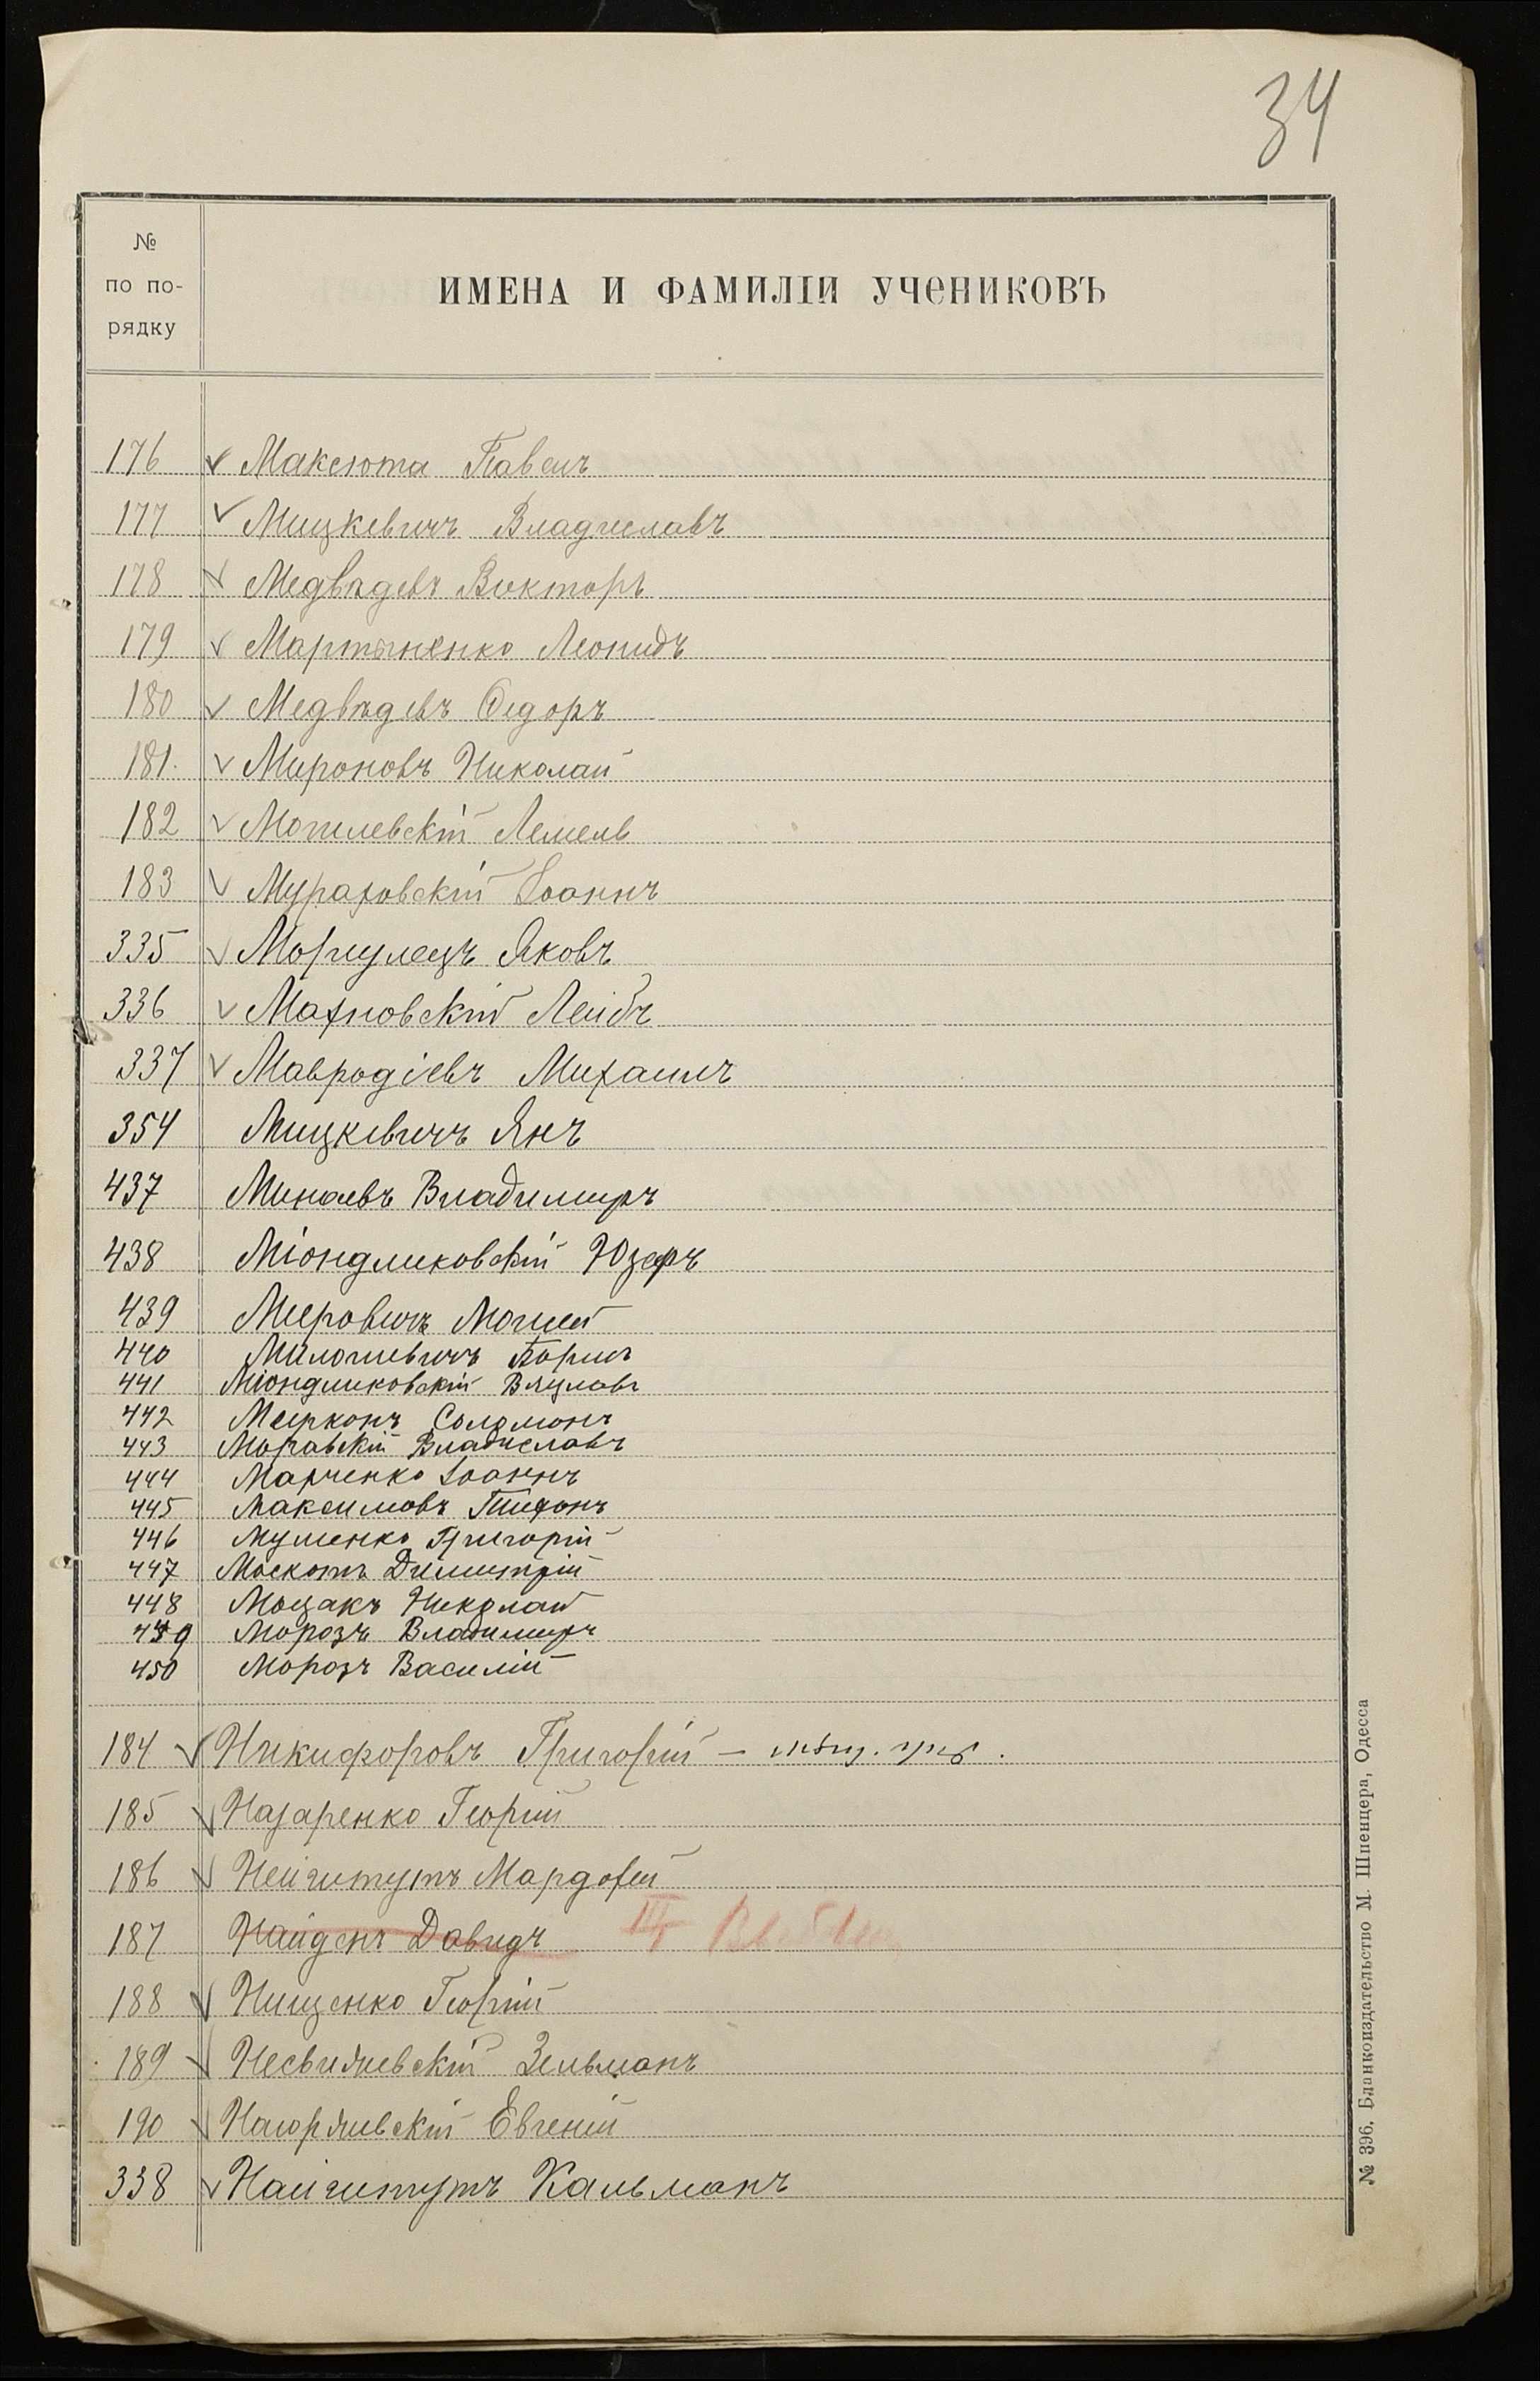 34
№
по по-
рядку
ИМЕНА И ФАМИЛІИ УЧЕНИКОВЪ
176 Максюта Павелъ
177 Мицкевичъ Владиславъ
178 Медвѣдевъ Викторъ
179 Мартыненко Леонидъ
180 Медвѣдевъ Ѳедоръ
181. Мироновъ Николай
182 Могилевскій Лемель
183 Мураховскій Іоаннъ
335 Моргулецъ Яковъ
336 Махновскій Лейбъ
337 Мавродіевъ Михаилъ
354 Мицкевичъ Янъ
437 Минаевъ Владимиръ
438 Міондликовскій Юзефъ
439 Мееровичъ Моисей
440 Милошевичъ Борисъ
441 Міондликовскій Вяцлавъ
442 Меирконъ Соломонъ
443 Моравскій Владиславъ
444 Марченко Іоаннъ
445 Максимовъ Тихонъ
446 Муленко Григорій
447 Москотъ Димитрій
448 Моцакъ Николай
449 Морозъ Владимиръ
450 Морозъ Василій
184 Никифоровъ Григорій —
185 Назаренко Георгій
186 Нейгитутъ Мардохей
187 Найденъ Давидъ III
188 Нищенко Георгій
189 Несвижевскій Зельманъ
190 Нагоряневскій Евгеній
338 Найгитутъ Кальманъ
№ 396. Бланкоиздательство М. Шпенцера, Одесса